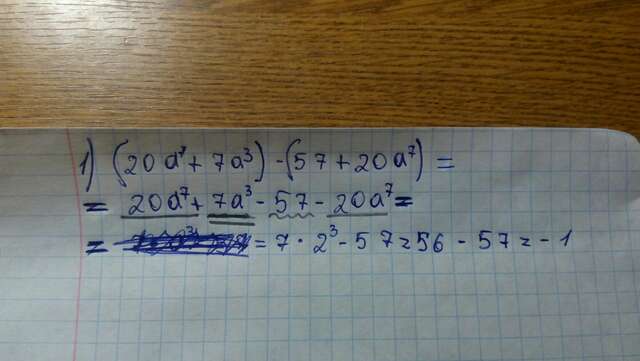 1) (20a⁷ + 7a³) - (57 + 20a⁷) =
= 20a⁷ + 7a³ - 57 - 20a⁷ =
= = 7 · 2³ - 57 = 56 - 57 = - 1